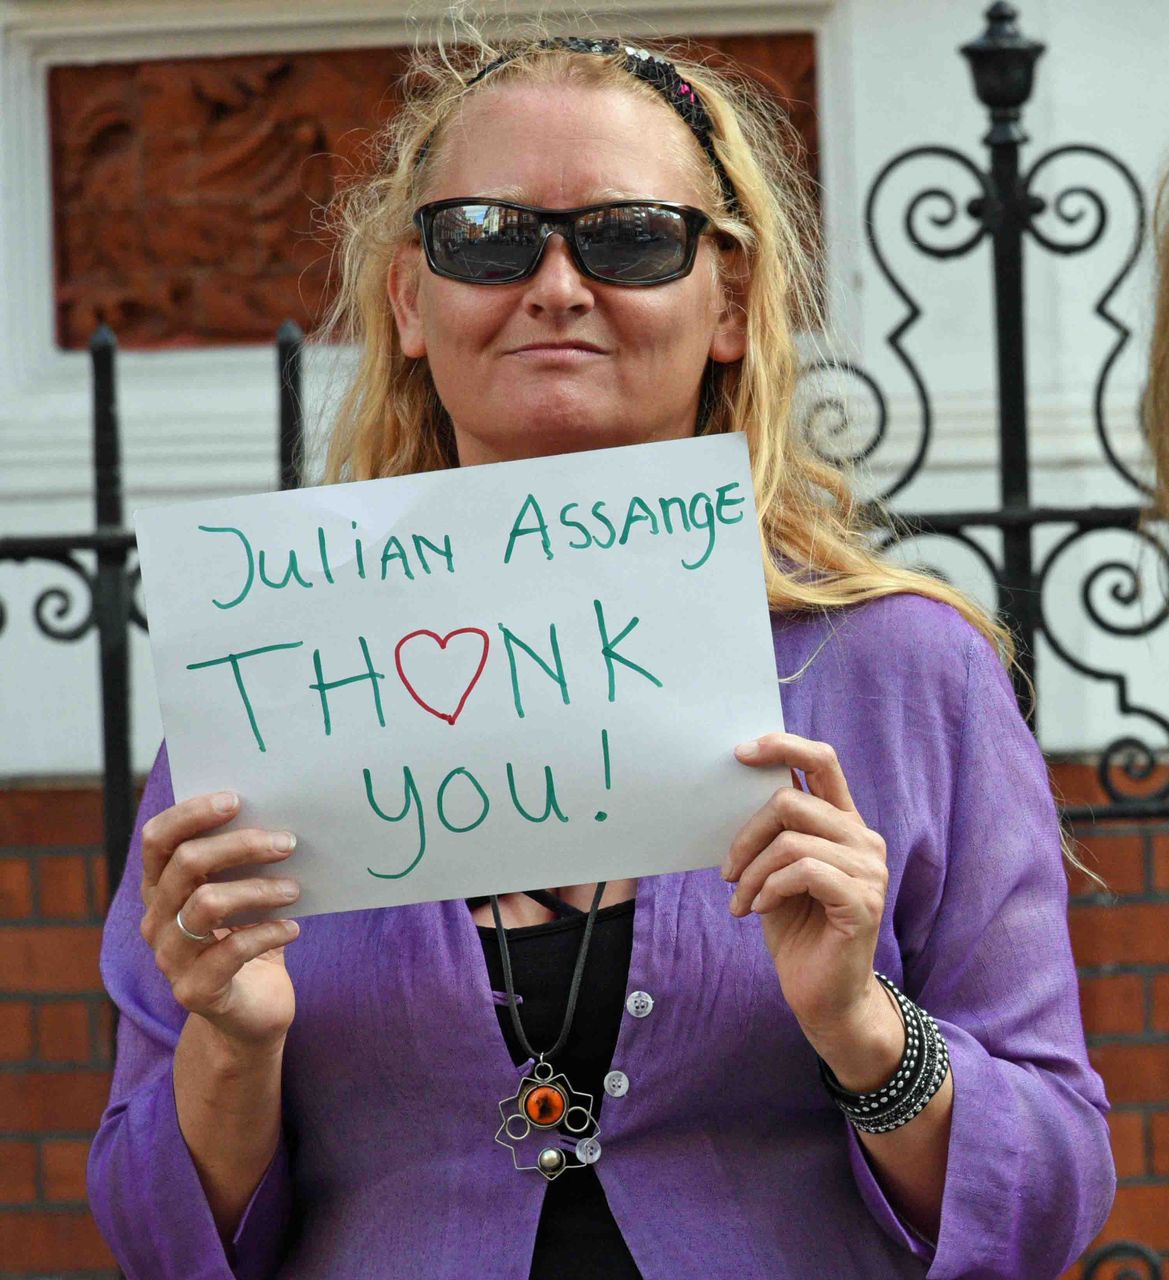 Julian Assange
TH♡NK
you!